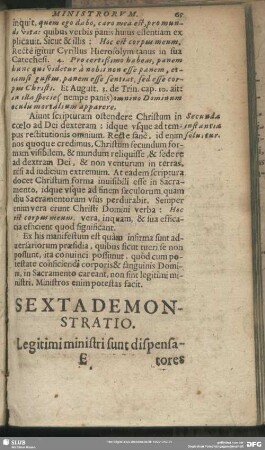 MINISTRORVM. 61
inquit, quem ego dabo, caro mea est pro mun-
di vita: quibus verbis panis huius essentiam ex-
plicauit. Sicut & illis: Hoc est corpus meum,
Recte igitur Cyrillus Hierosolymitanus in sua
Catechesi. 4. Pro certissimo habeas, panem
hunc qui videtur à nobis non esse panem, et-
iamsi gustus panem esse sentiat, sed esse cor-
pus Christi. Et August. 3. de Trin. cap. 10. ait:
in illa specie (nempe panis) munens Dominum
oculu mortalium apparere.
Aiunt scripturam ostendere Christum in Secunda
cœlo ad Dei dexteram: idque vsque ad tem- instantia
pus restitutionis omnium. Recte sane, id enim soluitur.
nos quoque credimus, Christum secundum for-
mam visibilem, & mundum reliquisse, & sedere
ad dextram Dei, & non venturum in terras,
nisi ad iudicium extremum. At eadem scriptura
docet Christum forma inuisibili esse in Sacra-
mento, idque vsque ad finem sæculorum, quam
diu Sacramentorum vsus perdurabit. Semper
enim vera erunt Christi Domini verba: Hoc
est corpus meum, vera, inquam, & sua effica-
cia efficient quod significant.
Ex his manifestum est quàm infirma sunt ad-
uersariorum præsidia, quibus sicut tueri se non
possunt, ita conuinci possunt, quòd cum po-
testate conficiendi corporis & sanguinis Domi-
ni, in Sacramento careant, non sunt legitimi mi-
nistri. Ministros enim potestas facit.
SEXTA DEMON-
STRATIO.
Legitimi ministri sunt dispensa-
E tores
SLUB
DFG